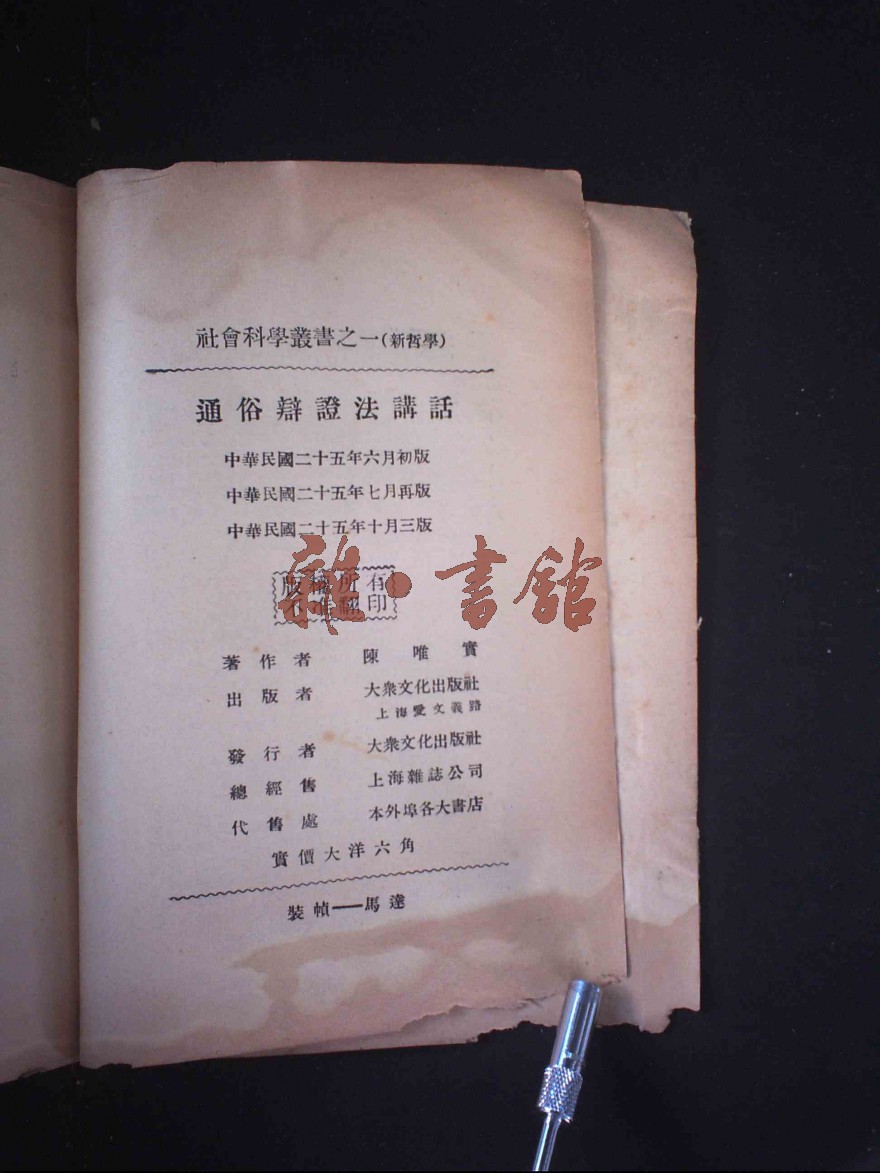 社會科學叢書之一(新哲學)
通俗辯證法講話
中華民國二十五年六月初版
中華民國二十五年七月再版
中華民國二十五年十月三版
版權所有
不准翻印
雜·書館
著作者 陳唯實
出版者 大衆文化出版社
上海愛文義路
發行者 大衆文化出版社
總經售 上海雜誌公司
代售處 本外埠各大書店
實價大洋六角
裝幀——馬達